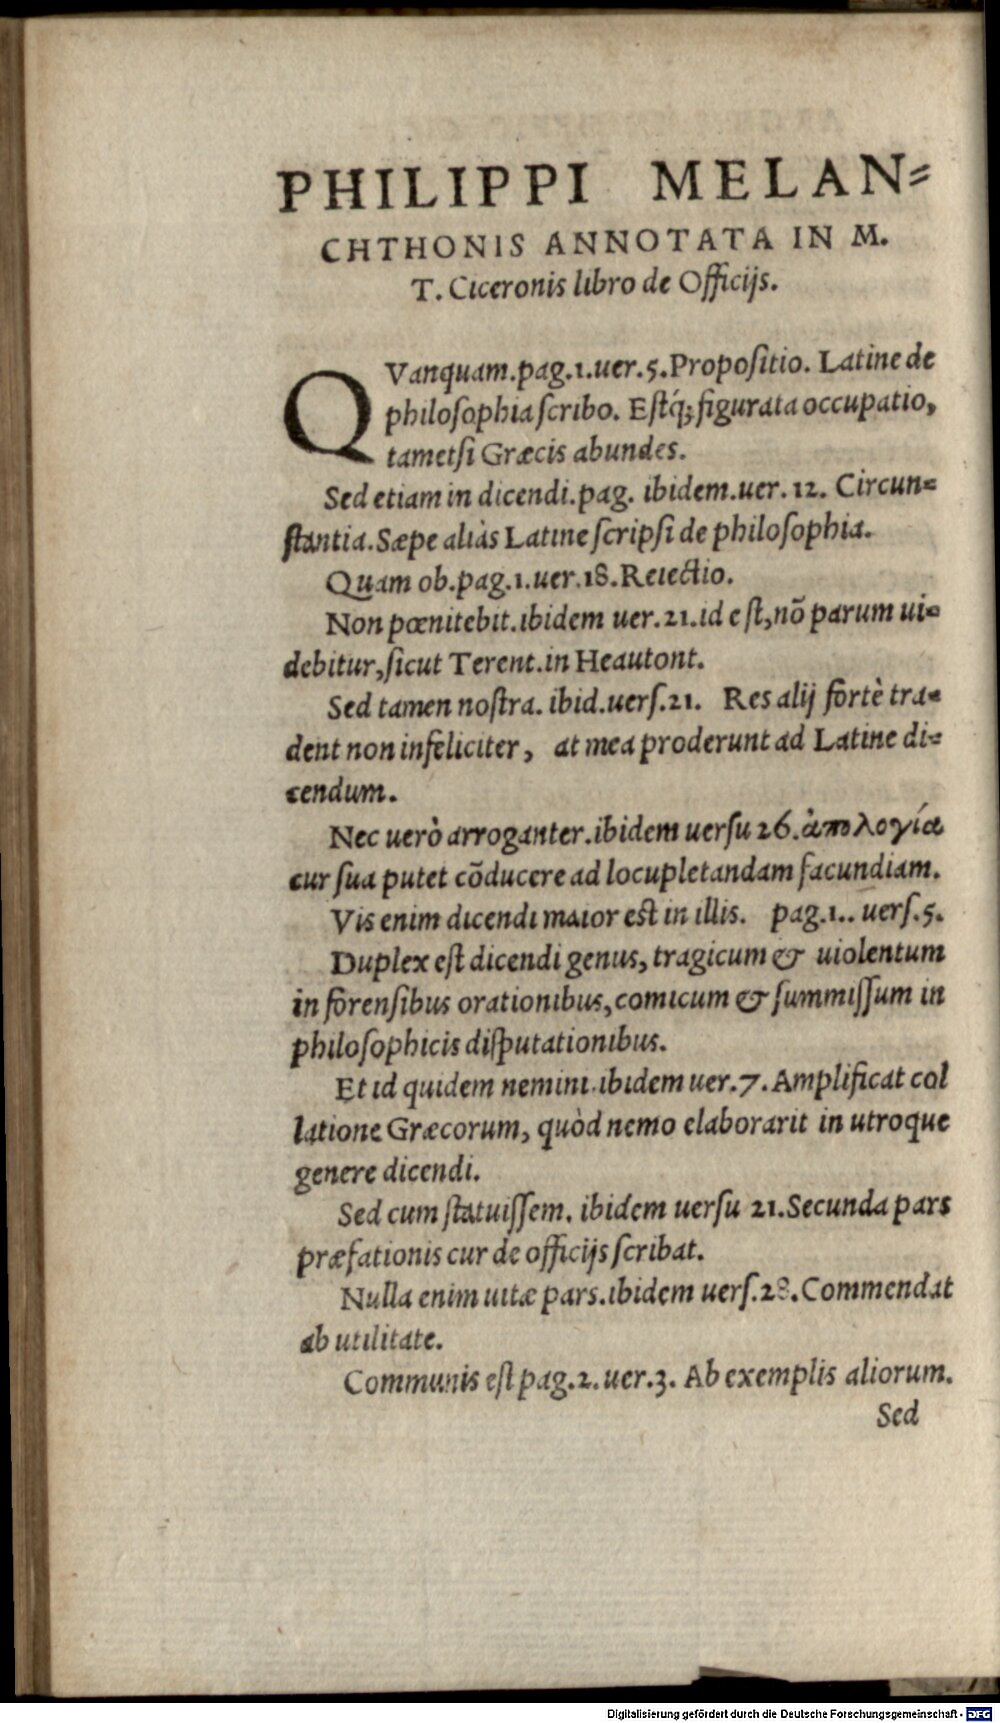 PHILIPPI MELAN=
CHTHONIS ANNOTATA IN M.
T. Ciceronis libro de Officijs.
QVanquam.pag.1.uer.5.Propositio. Latine de
philosophia scribo. Estq́; figurata occupatio,
tametsi Græcis abundes.
Sed etiam in dicendi.pag. ibidem.uer. 12. Circun=
stantia.Sæpe aliàs Latine scripsi de philosophia.
Quam ob.pag.1.uer.18.Reiectio.
Non pœnitebit.ibidem uer.21.id est,nō parum ui=
debitur,sicut Terent.in Heautont.
Sed tamen nostra. ibid.uers.21. Res alij fortè tra=
dent non infeliciter, at mea proderunt ad Latine di=
cendum.
Nec uerò arroganter.ibidem uersu 26.ἀπολογία
cur sua putet cōducere ad locupletandam facundiam.
Vis enim dicendi maior est in illis. pag.1.. uers.5.
Duplex est dicendi genus, tragicum & uiolentum
in forensibus orationibus,comicum & summissum in
philosophicis disputationibus.
Et id quidem nemini.ibidem uer.7.Amplificat col
latione Græcorum, quòd nemo elaborarit in utroque
genere dicendi.
Sed cum statuissem. ibidem uersu 21.Secunda pars
præfationis cur de officijs scribat.
Nulla enim uitæ pars.ibidem uers.28.Commendat
ab utilitate.
Communis est pag.2.uer.3. Ab exemplis aliorum.
Sed
Digitalisierung gefördert durch die Deutsche Forschungsgemeinschaft - DFG